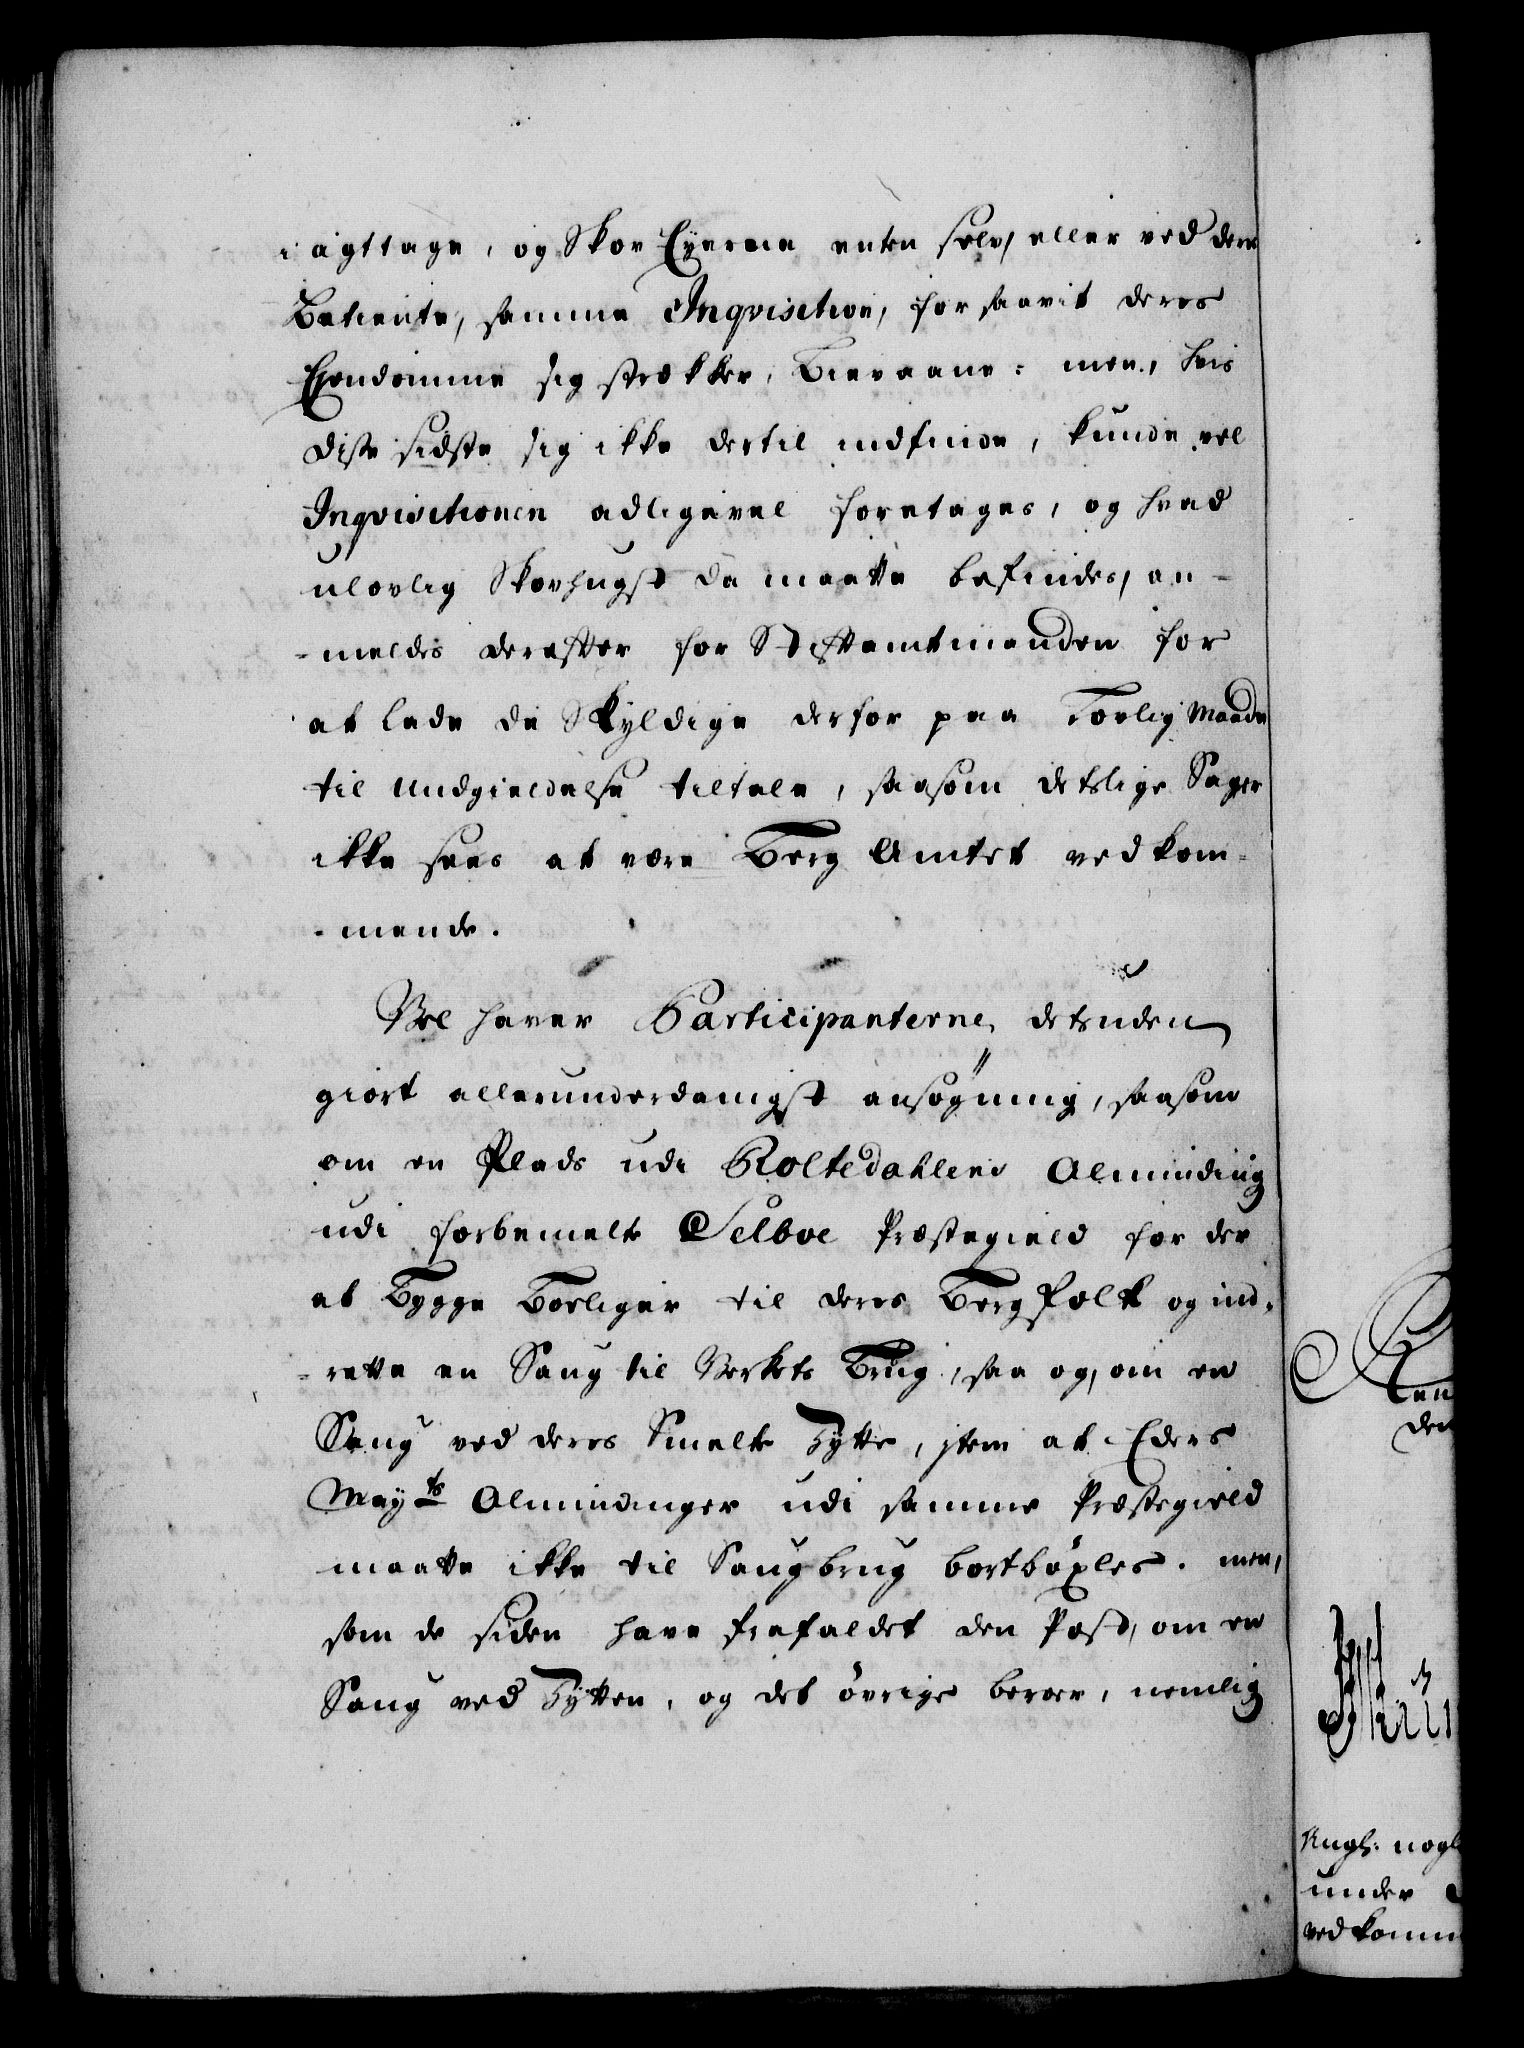 i agttage, og Skov Eyerne enten selv, eller ved deres
Betiente, samme Inqvisition, for saavit deres
Ejendomme sig strækker, Bievaane: men, hvis
disse sidste sig ikke dertil indfinde, kunde vel
Inqvisitionen adligevel foretages, og hvad
ulovlig Skovhugst da maatte befindes, an-
-meldes derefter for Stiftamtmanden for
at lade de Skyldige derfor paa Lovlig Maade
til Undgieldelse tiltale, saasom deslige Sager
ikke sees at være Berg Amtet vedkom-
-mende.
Vel haver Participanterne, desuden
giort allerunderdanigst ansøgning, saasom
om en Plads udi Roltedahlens Alminding
udi forbemelte Selboe Præstegield for der
at Bygge Boeliger til deres Berg Folk og ind-
-rette en Saug til Verkets Brug, saa og, om en
Saug ved deres Smelte Hytte, jtem at Eders
May.ts Almindinger udi samme Præstegield
maatte ikke til Saugbrug bortbøxles. men,
som de siden have frafaldet den Post, om en
Saug ved Hytten, og det øvrige beroer, nemlig
Angh: nogl
under
vedkomm